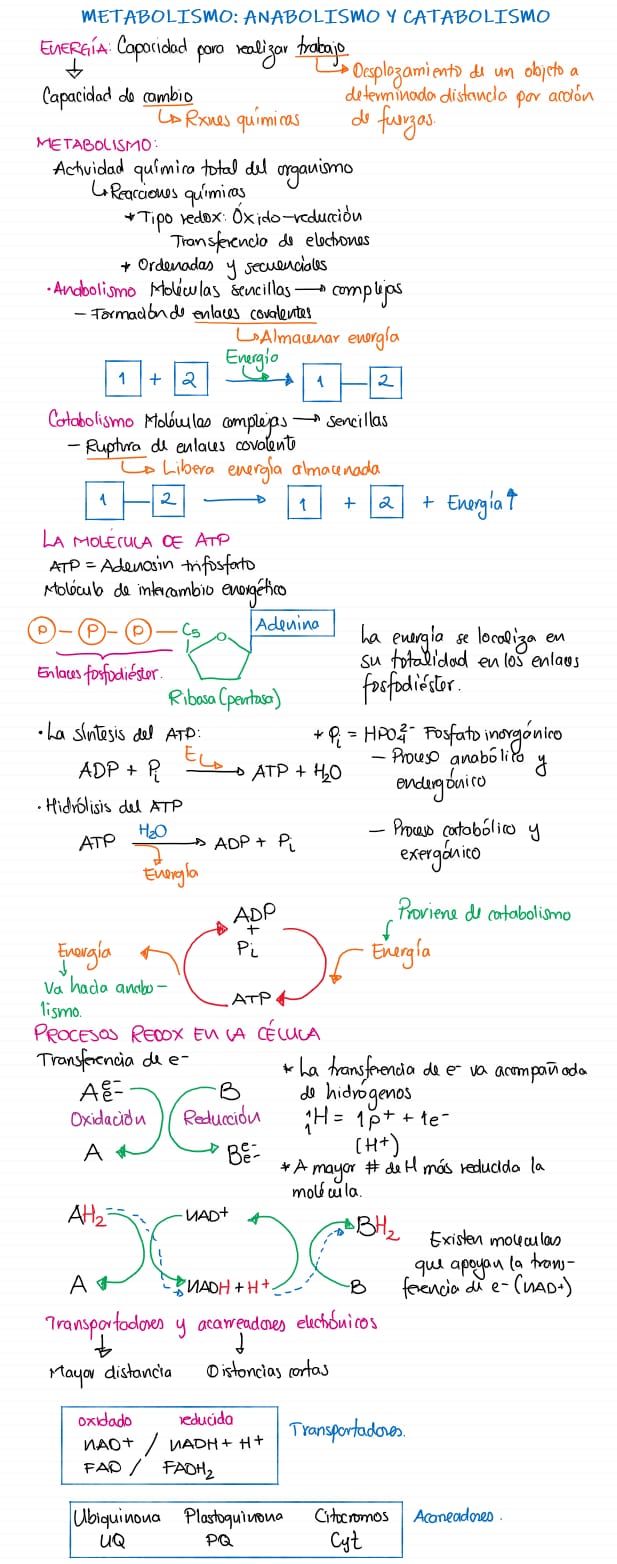 METABOLISMO: ANABOLISMO Y CATABOLISMO
ENERGÍA: Capacidad para realizar trabajo
Desplazamiento de un objeto a
determinada distancia por acción
de fuerzas.
Capacidad de cambio
Rxnes químicas
METABOLISMO:
Actividad química total del organismo
Reacciones químicas
* Tipo redox: Óxido-reducción
Transferencia de electrones
* Ordenadas y secuenciales
· Anabolismo Moléculas sencillas → complejas
- Formación de enlaces covalentes
Almacenar energía
Energía
1 + 2 → 1 — 2
Catabolismo Moléculas complejas → sencillas
- Ruptura de enlaces covalente
Libera energía almacenada
1 — 2 → 1 + 2 + Energía↑
LA MOLÉCULA DE ATP
ATP = Adenosin trifosfato
Molécula de intercambio energético
P - P - P - C5 O Adenina
Enlaces fosfodiéster.
Ribosa (pentosa)
La energía se localiza en
su totalidad en los enlaces
fosfodiéster.
· La síntesis del ATP:
ADP + Pi E → ATP + H2O
* Pi = HPO4²⁻ Fosfato inorgánico
- Proceso anabólico y
endergónico
· Hidrólisis del ATP
ATP H2O → ADP + Pi
Energía
- Proceso catabólico y
exergónico
ADP
+
Pi
ATP
Energía
Va hacia anabo-
lismo.
Proviene de catabolismo
Energía
PROCESOS REDOX EN LA CÉLULA
Transferencia de e-
A e- e- B
Oxidación Reducción
A B e- e-
* La transferencia de e- va acompañada
de hidrógenos
¹₁H = 1p+ + 1e-
(H+)
* A mayor # de H más reducida la
molécula.
AH2 NAD+ BH2
A NADH + H+ B
Existen moleculas
que apoyan la trans-
ferencia de e- (NAD+)
Transportadores y acarreadores electrónicos
Mayor distancia Distancias cortas
oxidado reducido
NAD+ / NADH + H+
FAD / FADH2
Transportadores.
Ubiquinona Plastoquinona Citocromos
UQ PQ Cyt
Acarreadores.